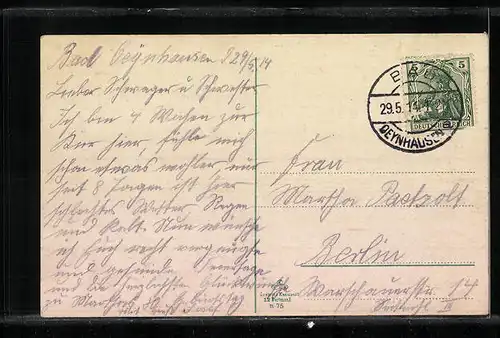 Bad Oeynhausen d 29/5. 14
Lieber Schwager u Schwester
Ich bin 4 Wochen zur
Kur hier, fühle mich
schon etwas wohler, nur
seit 8 Tagen ist hier
schlechtes Wetter Regen
und Kalt. Nun wünsche
ich Euch recht vergnügte
und gesunde Feiertage
und die herzlichsten Glückwünsche
zu Marthas Geburtstag
BAD
29.5.14
OEYNHAUSEN
5
DEUTSCHES REICH
Frau
Martha Pactzolt
Berlin
Warschauerstr.